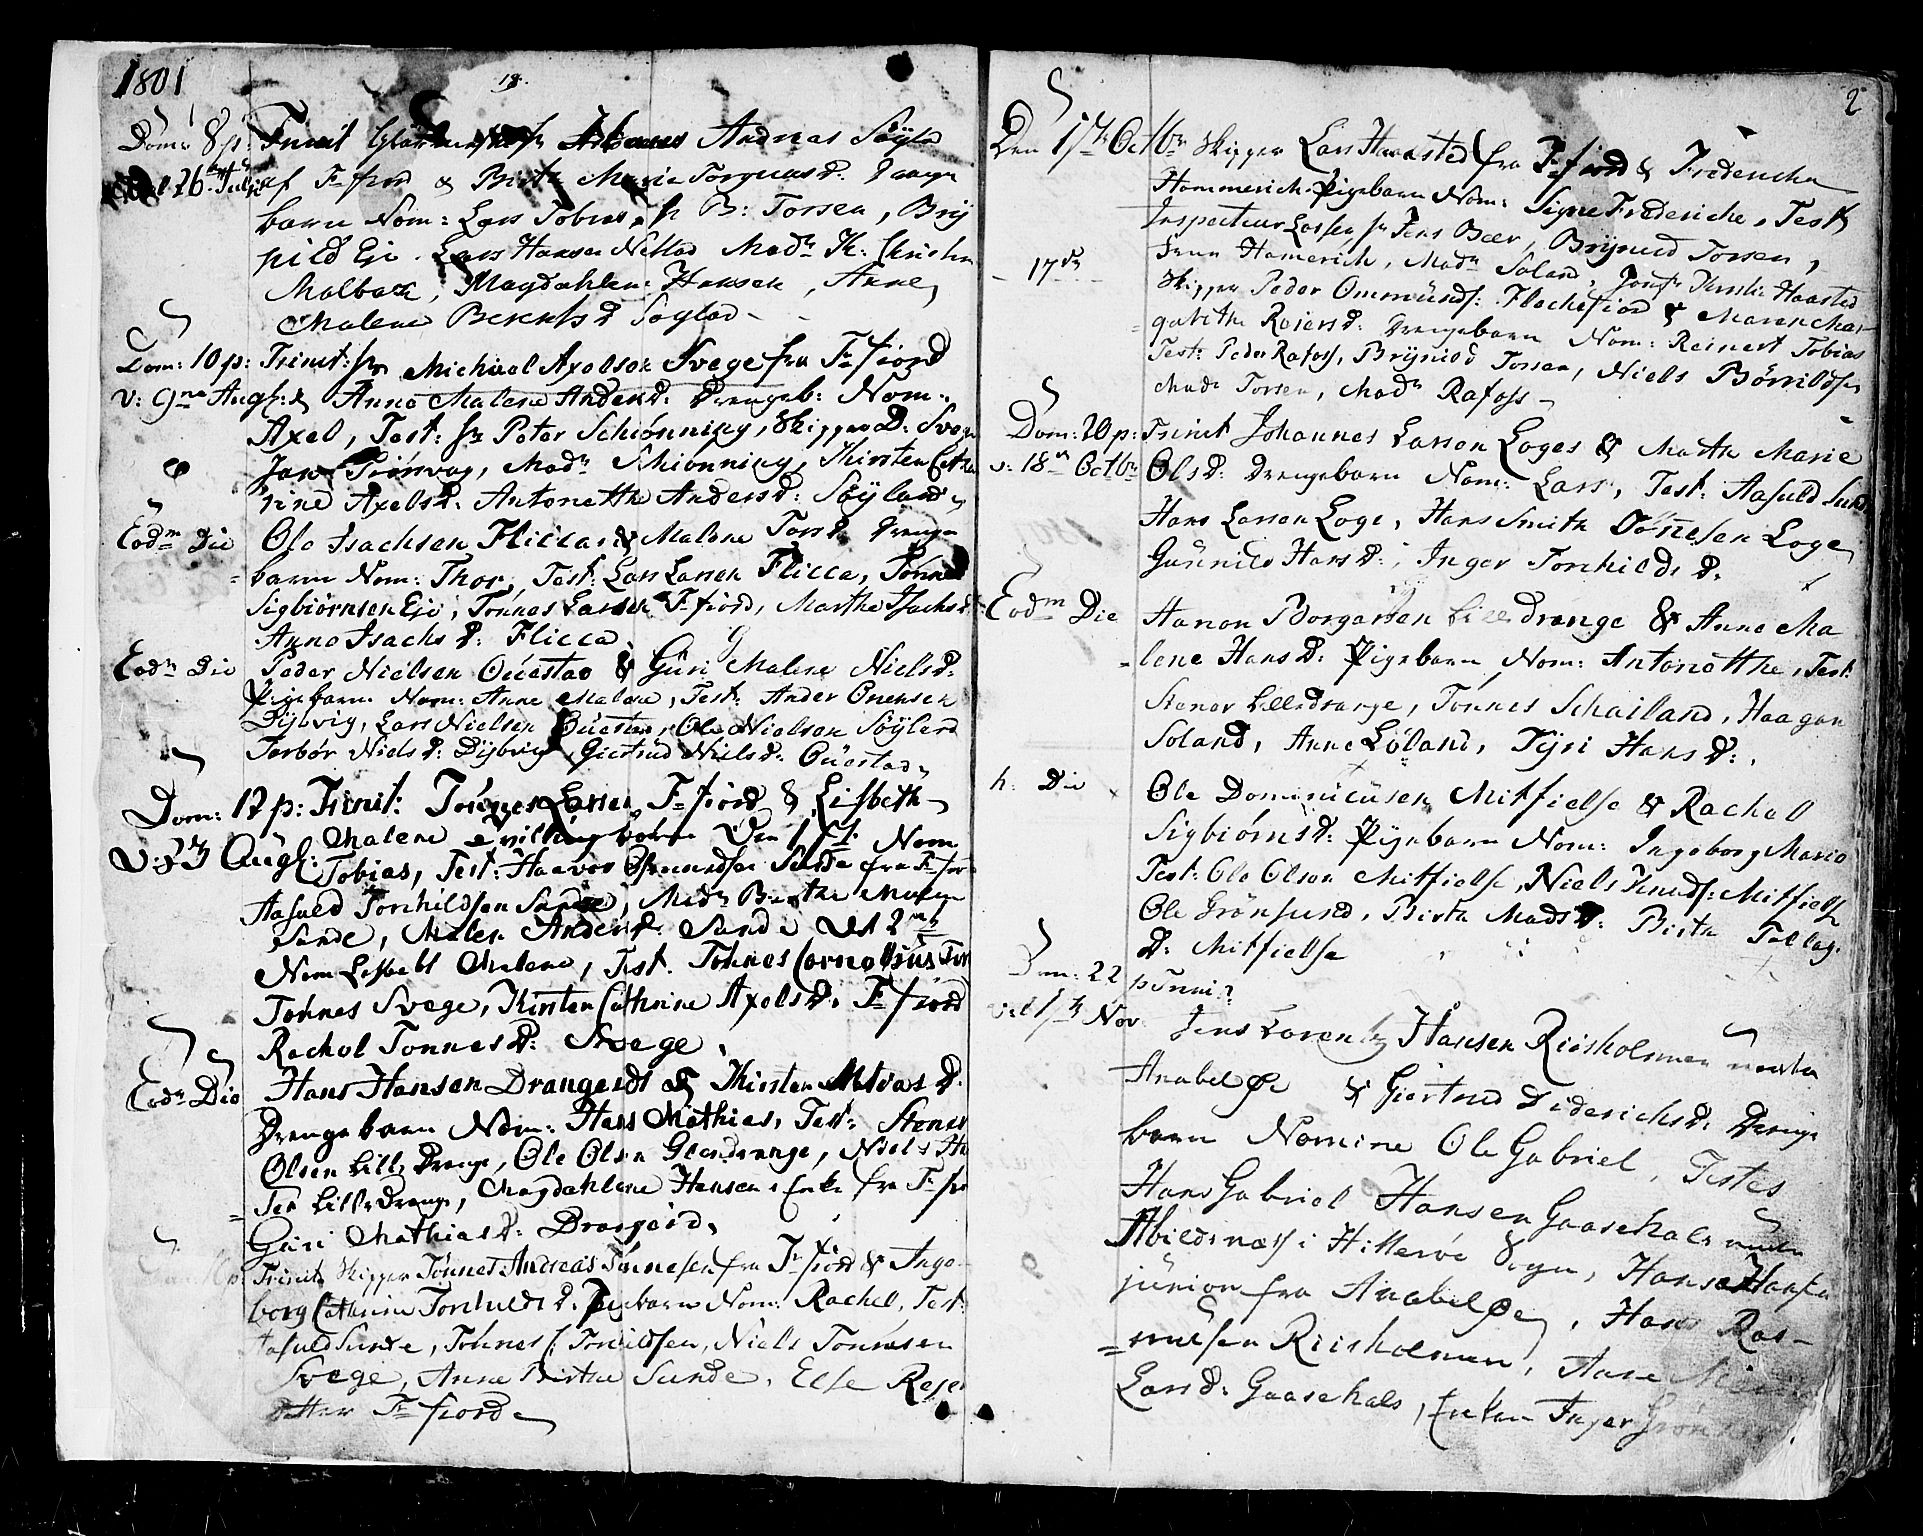 1801
18.
Dom: 8 p: Trinit Andreas Søyla
26 Julii af F-fiord & Birte Marie Torgersd. Drenge
barn Nom: Lars Tobias, B: Torsen, Bry
nild Eje. Lars Hansen Mad: K:
Malbae, Magdahlene Hansen, Anne
Malene Berentsd Søylad
Dom: 10 p: Trinit: Michael Axelsen Svege fra F-fiord
v: 9ne Aug: & Anne Malene Andersd. Drengeb: Nom:
Axel, Test: Peter Schiønning, Skipper D: Svege
Jan, Mad: Schiønning, Kirsten Cath
rine Axelsd: Antonette Andersd: Søyland
Eodm Die Ole Isachsen Flicca & Malene Torsd. Drenge
barn Nom: Thor, Test: Lars Larsen Flicca, Tønnes
Sigbiørnsen Eje, Tønnes Larsen F-fiord, Marthe Isachsd:
Anne Isachsd: Flicca
Eodm Die Peder Nielsen Qúestad & Gúri Malene Nielsd:
Pigebarn Nom: Anne Malene, Test: Ander Onensen
Dijbvig, Lars Nielsen Qúestad, Ole Nielsen Søyland
Torbør Nielsd: Dijbvig Giertrud Nielsd: Qúestad
Dom: 12 p: Trinit: Tønnes Larsen F-fiord & Lisbeth
v: 23 Aug: Malene tvillingbørn Den 1ste Nom
Tobias, Test: Haavor Sunde fra F-fior
Aasuld Torchildsen Sunde, Mad: Birthe Malene
Sunde, Malen Andersd: Sunde Den 2
Nom Lisbeth Malene, Test. Tønnes Cornelius Tor
Tønnes Svege, Kirsten Cathrine Axelsd: F-fiord
Rachel Tønnesd: Svege,
Eodm Die Hans Hansen Drangerdt & Kirsten D.
Drengebarn Nom: Hans Mathias, Test: Stener
Olsen Lille Drange, Ole Olsen Glendrange, Niels Ha
sen Lille Drange, Magdahlene Hansen, Enke fra F-fio
Gúri Mathiasd: Drangerd,
Trinit: Skipper Tønnes Andreas Tønnesen fra F-fiord & Inge
borg Cathrine Torkildsd. Pigebarn Nom: Rachel, Test:
Aasuld Sunde, Tønnes C: Torkildsen, Niels Tønnesen
Svege, Anne Birthe Sunde, Else Rejer
datter F-fiord
2
Den 17de Octbr Skipper Lars Haasted fra F-fiord & Fridericha
Hammerich Pigebarn Nom: Signe Frideriche, Test:
Inspecteur Lossen Jens Beer, Brynild Torsen,
Hamerich, Mad: Soland, Jomfr Haasted
- 17de - Skipper Peder Ommúnds: Flechefiord & Maren Mar
gretthe Reiersd. Drengebarn Nom: Reinert Tobias
Test: Peder Rafoss, Brynild Torsen, Niels Børrildsen
Mad: Torsen, Mad: Rafoss
Dom: 20 p: Trinit Johannes Larsen Loges & Marth Marie
v: 18de Octbr Olsd: Drengebarn Nom: Lars, Test: Aasuld Sunde
Hans Larsen Loge, Hans Smith Tønnesen Loge
Gúnnild Hansd:, Inger Torkilds D.
Eodm Die Hanon Borgersen Lilledrange & Anne Ma
lene Hansd: Pigebarn Nom: Antonette, Test:
Stener Lilledrange, Tønnes Schailand, Haagen
Soland, Anne Løland, Tyri Hansd:.
h: Die Ole Dominicúsen Mitfielse & Rachel
Sigbiørnsd: Pigebarn Nom: Ingeborg Marie
Test: Ole Olsen Mitfielse, Niels Knuds: Mitfielse
Ole Grønsund, Birta Madsd: Birte Tellags
D: Mitfielse
Dom: 22 p Trini:
v: d 1ste Nov Jens Lorentz Hansen Riisholmen
Anabeløe & Giertrud Didericksd. Drenge
barn Nomine Ole Gabriel, Testes
Hans Gabriel Hansen Gaasehals
Abildsnæss i Hitterøe Sogn, Hans Hansen
júnior fra Anabeløe, Hans Ras-
mussen Riisholmen, Anne
Larsd: Gaasehals, Enken Inger